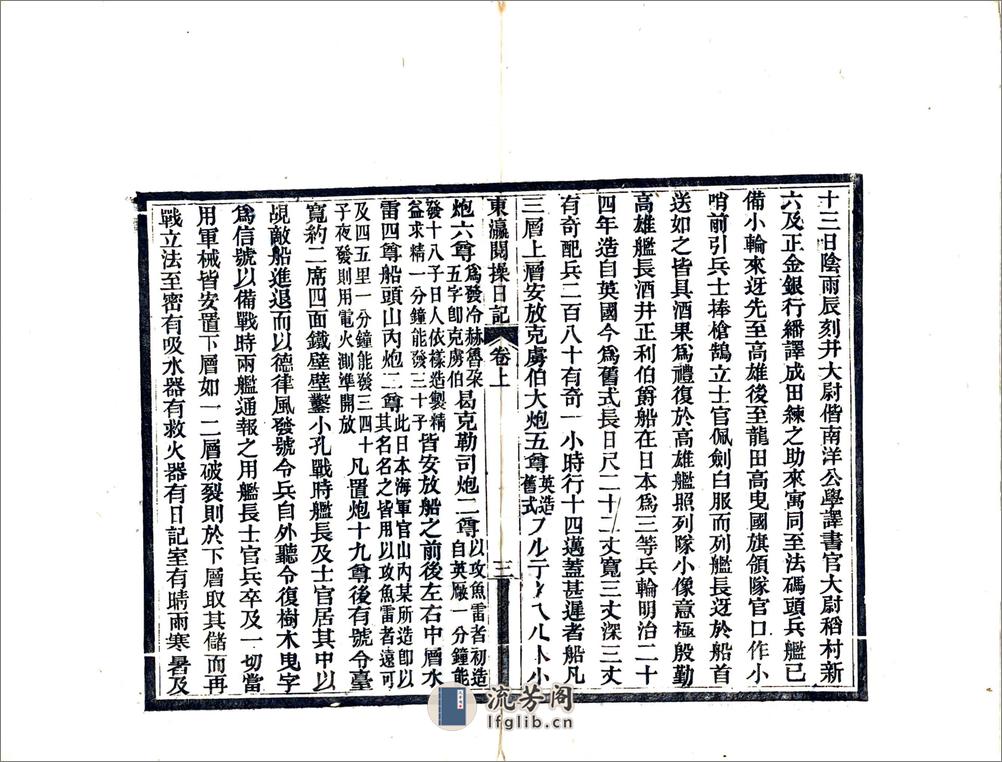 十三日陰雨辰刻井大尉偕南洋公學譯書官大尉稻村新
六及正金銀行繙譯成田練之助來寓同至法碼頭兵艦已
備小輪來迓先至高雄後至龍田高曳國旗領隊官口作小
哨前引兵士捧槍鵠立士官佩劍白服而列艦長迓於船首
送如之皆具酒果爲禮復於高雄艦照列隊小像意極殷勤
高雄艦長酒井正利伯爵船在日本爲三等兵輪明治二十
四年造自英國今爲舊式長日尺二十二丈寬三丈深三丈
有奇配兵二百八十有奇一小時行十四邁蓋甚遲者船凡
三層上層安放克虜伯大炮五尊英造舊式フルテメ人八卜小
東瀛閱操日記 卷上 三
炮六尊爲發冷赫魯朶五字卽克虜伯發十八子日人依樣造製精益求精一分鐘能發三十子曷克勒司炮二尊以攻魚雷者初造自英厰一分鐘能皆安放船之前後左右中層水
雷四尊船頭山內炮二尊此日本海軍官山內某所造卽以其名名之皆用以攻魚雷者遠可及四五里一分鐘能發三四十子夜發則用電火測準開放凡置炮十九尊後有號令臺
寬約二席四面鐵壁壁鑿小孔戰時艦長及士官居其中以
覘敵船進退而以德律風發號令兵自外聽令復樹木曳字
爲信號以備戰時兩艦通報之用艦長士官兵卒及一切當
用軍械皆安置下層如一二層破裂則於下層取其儲而再
戰立法至密有吸水器有救火器有日記室有晴雨寒暑及
流芳阁
lfglib.cn